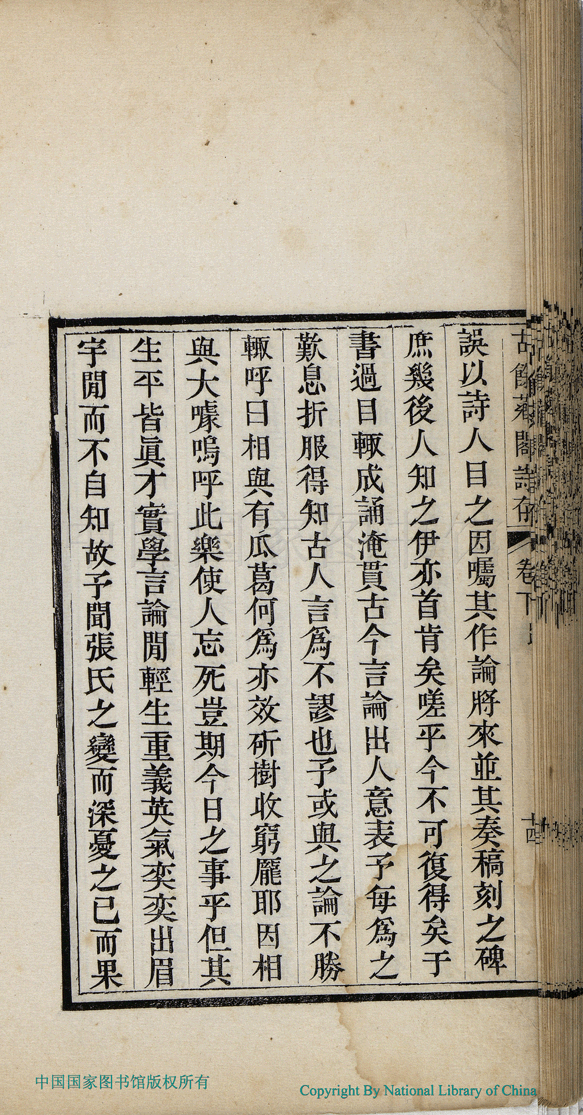 誤以詩人目之因囑其作論將來並其奏稿刻之碑
庶幾後人知之伊亦首肯矣嗟乎今不可復得矣于
書過目輒成誦淹貫古今言論出人意表予每爲之
歎息折服得知古人言爲不謬也予或與之論不勝
輒呼曰相與有瓜葛何爲亦效斫樹收窮龐耶因相
與大噱嗚呼此樂使人忘死豈期今日之事乎但其
生平皆眞才實學言論閒輕生重義英氣奕奕出眉
宇閒而不自知故予聞張氏之變而深憂之已而果
卷下
十四
中国国家图书馆版权所有
Copyright By National Library of China